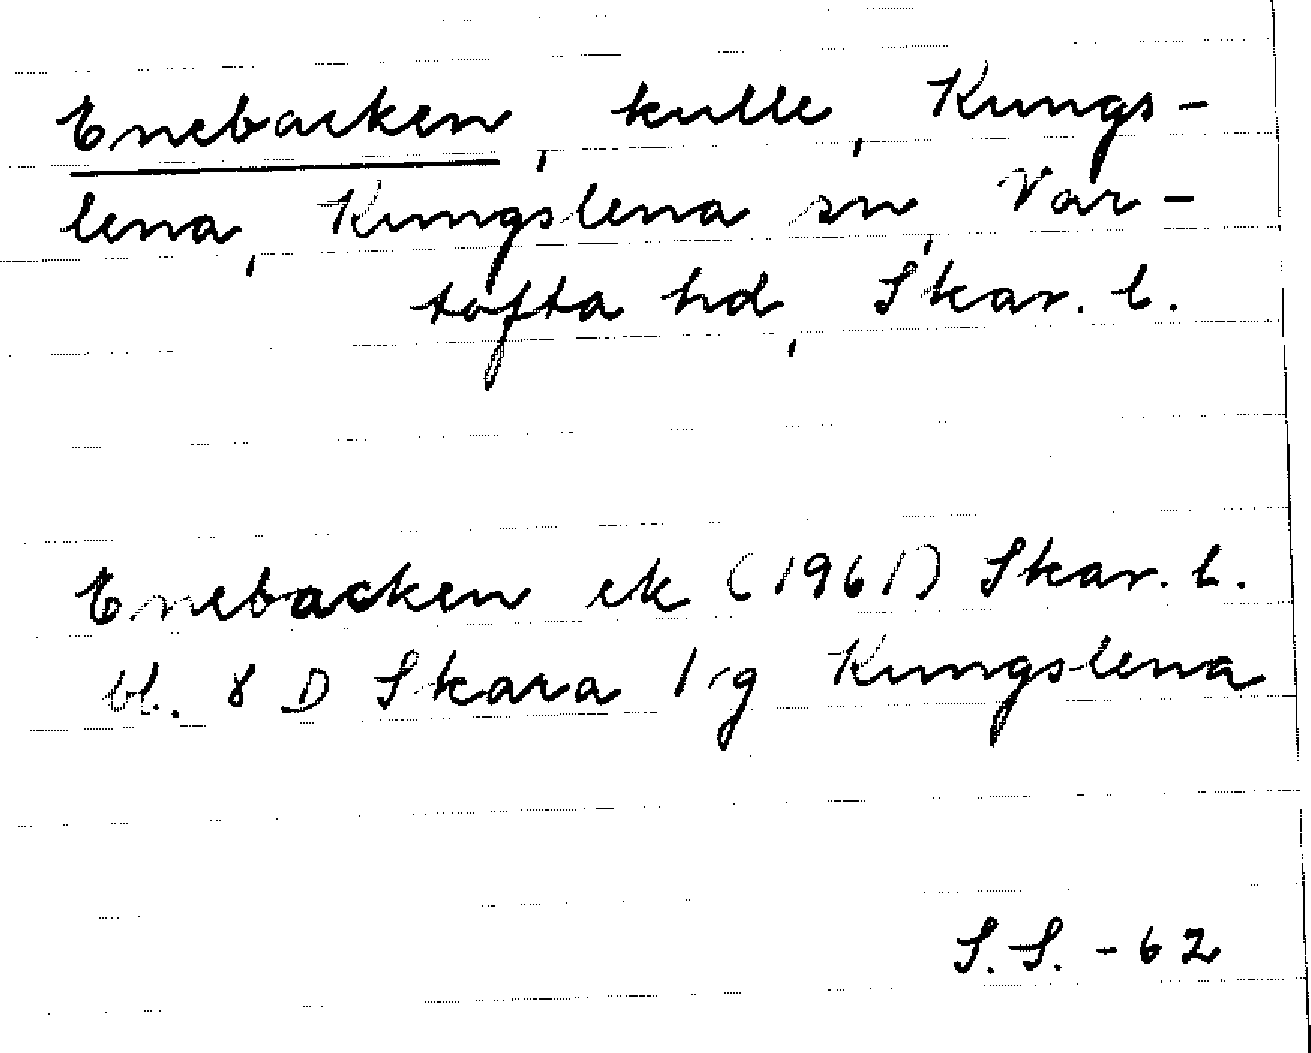 Enebacken, kulle, Kungs-
lena, Kungslena sn, Var-
tofta hd, Skar. l.
Enebacken ek (1961) Skar. l.
bl. 8 D Skara 1 g Kungslena
S.S. -62